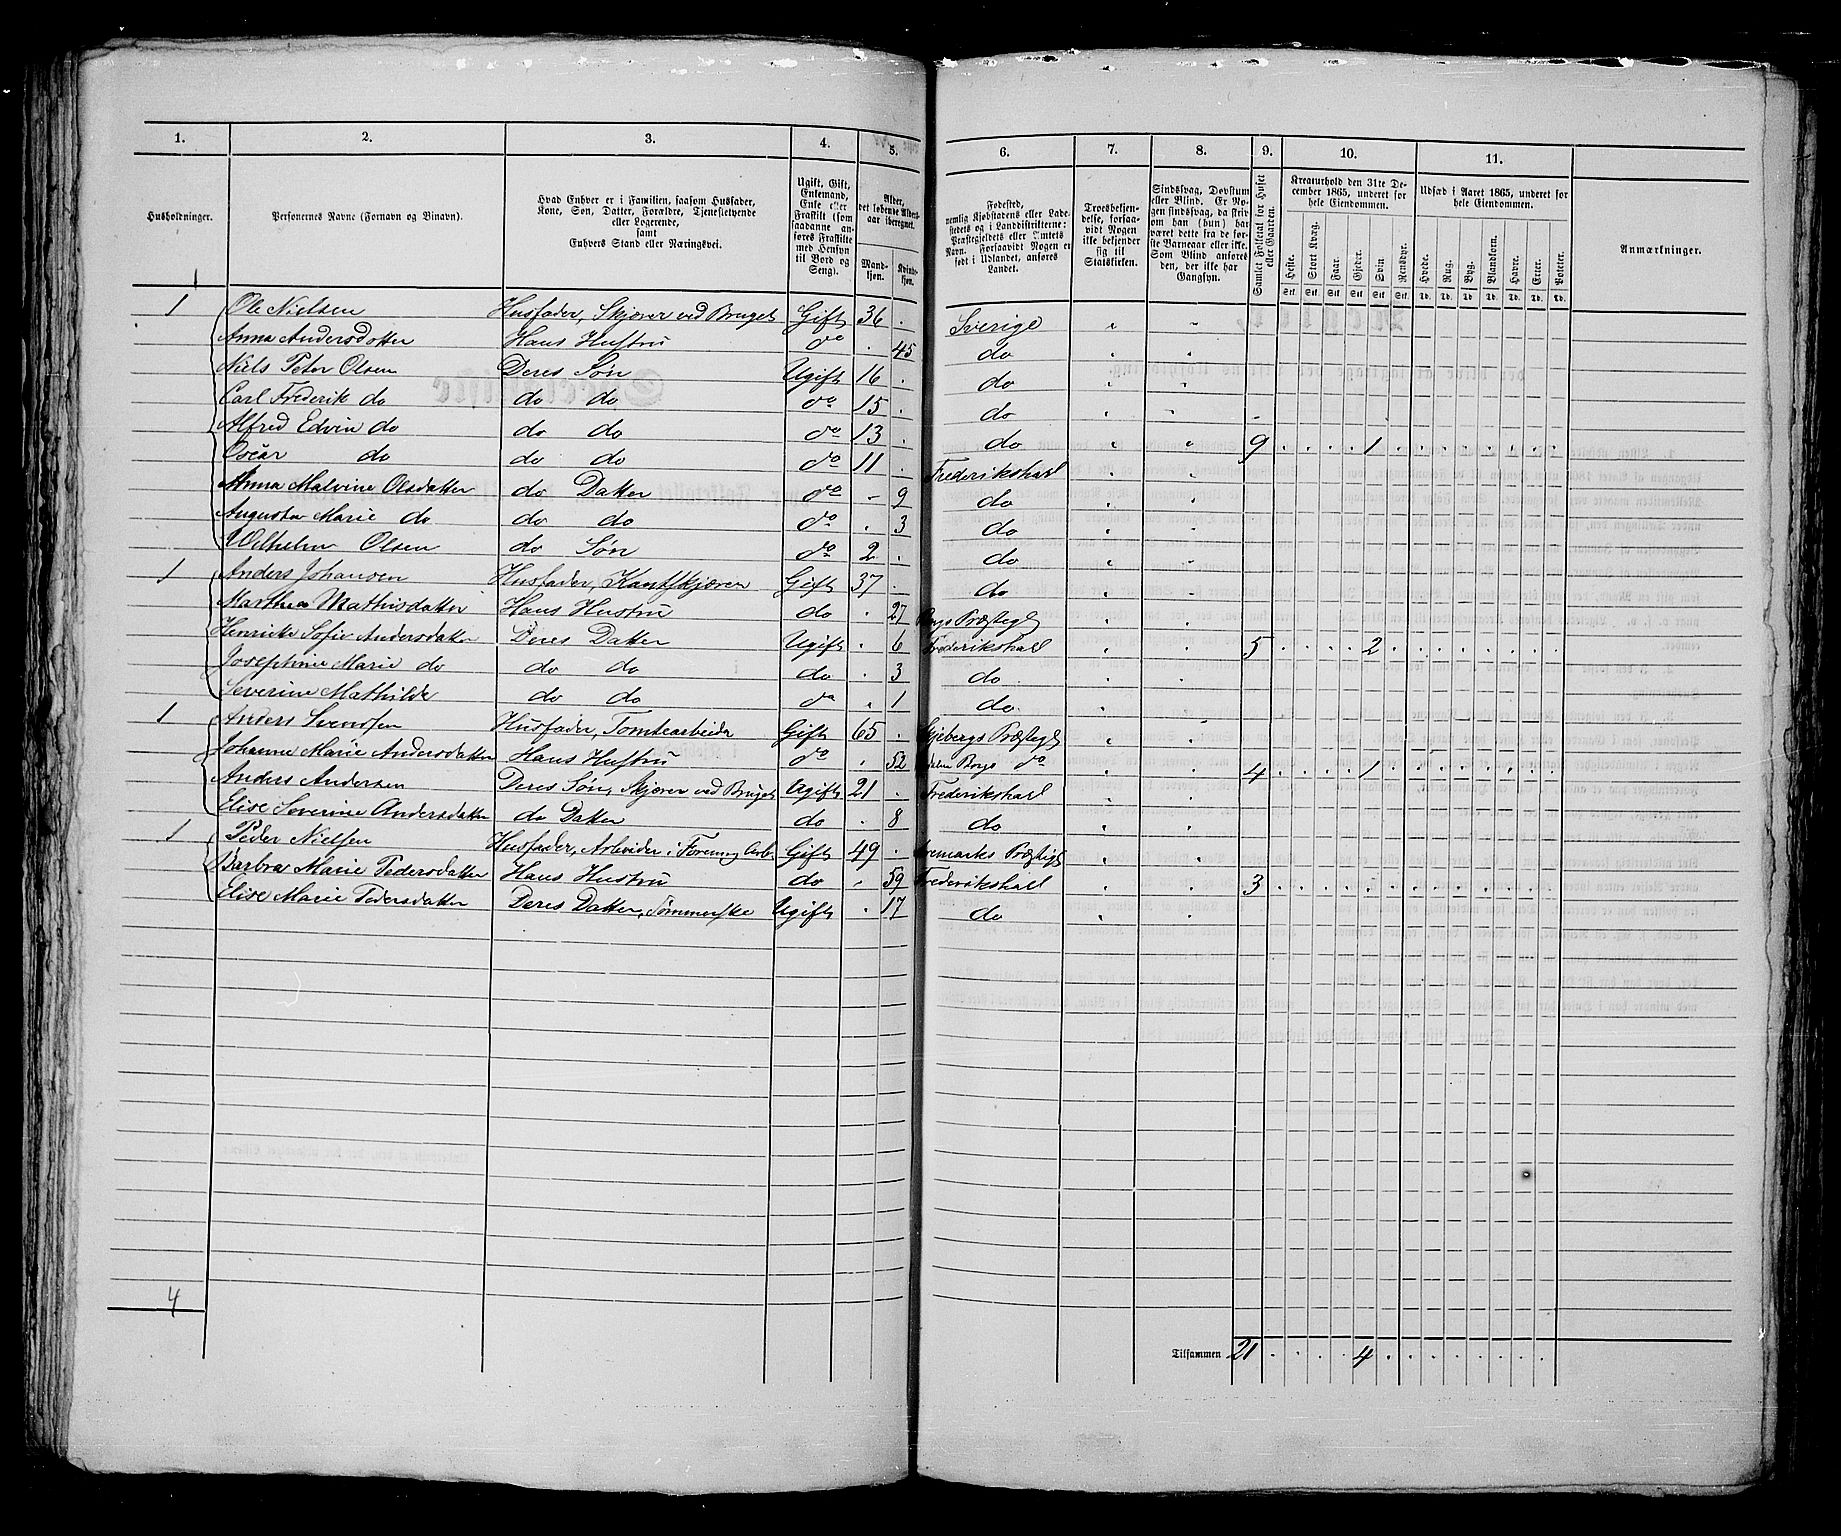 1. 2. 3. 4. 5. 6. 7. 8. 9. 10. 11.
Husholdninger.
Personernes Navne (Fornavn og Binavn).
Hvad Enhver er i Familien, saasom Husfader, Kone, Søn, Datter, Forældre, Tjenestetyende eller Logerende, samt Enhvers Stand eller Næringsvei.
Ugift, Gift, Enkemand, Enke eller Fraskilt (som saadanne anføres Fraskilte med Hensyn til Bord og Seng).
Alder, det løbende Aldersaar iberegnet.
Mandkjøn. Kvindekjøn.
Fødested, nemlig Kjøbstadens eller Ladestedets og i Landdistrikterne: Præstegjeldets eller Amtets Navn. Forsaavidt Nogen er født i Udlandet, anføres Landet.
Troesbekjendelse, forsaavidt Nogen ikke bekjender sig til Statskirken.
Sindssvag, Døvstum eller Blind. Er Nogen sindssvag, da skrives om han (hun) har været dette fra de første Barneaar eller ikke. Som Blind anføres den, der ikke har Gangsyn.
Samlet Folketal for Huset eller Gaarden.
Kreaturhold den 31te December 1865, underet for hele Eiendommen.
Heste. Stort Kvæg. Faar. Gjeder. Svin. Rensdyr.
Udsæd i Aaret 1865, underet for hele Eiendommen.
Hvede. Rug. Byg. Blandkorn. Havre. Erter. Poteter.
Anmærkninger.
1 Ole Nielsen Husfader, Skjærer ved Bruget Gift 36 Sverige
Anna Andersdatter Hans Hustru do 45 do
Niels Peter Olsen Deres Søn Ugift 16 do
Carl Frederik do do do do 15 do
Alfred Edvin do do do do 13 do 9 1
Oscar do do do do 11 Frederikshald
Anna Malvine Olsdatter do Datter do 9 do
Augusta Marie do do do do 3 do
Wilhelm Olsen do Søn do 2 do
1 Anders Johansen Husfader, Kantskjærer Gift 37 do
Marthea Mathisdatter Hans Hustru do 27 Borgs Præstegd
Henrikke Sofie Andersdatter Deres Datter Ugift 6 Frederikshald 5 2
Josephine Marie do do do do 3 do
Severine Mathilde do do do 1 do
1 Anders Svendsen Husfader, Tomtearbeider Gift 65 Skjebergs Præstegd
Johanne Marie Andersdatter Hans Hustru do 52 Borgs do
Anders Andersen Deres Søn, Skjærer ved Bruget Ugift 21 Frederikshald 4 1
Elise Severine Andersdatter do Datter do 8 do
1 Peder Nielsen Husfader, Arbeider i Gift 49 Aremarks Præstegd
Barbra Marie Pedersdatter Hans Hustru do 59 Frederikshald 3
Elise Marie Pedersdatter Deres Datter, Sømmerske Ugift 17 do
4
Tilsammen 21 4